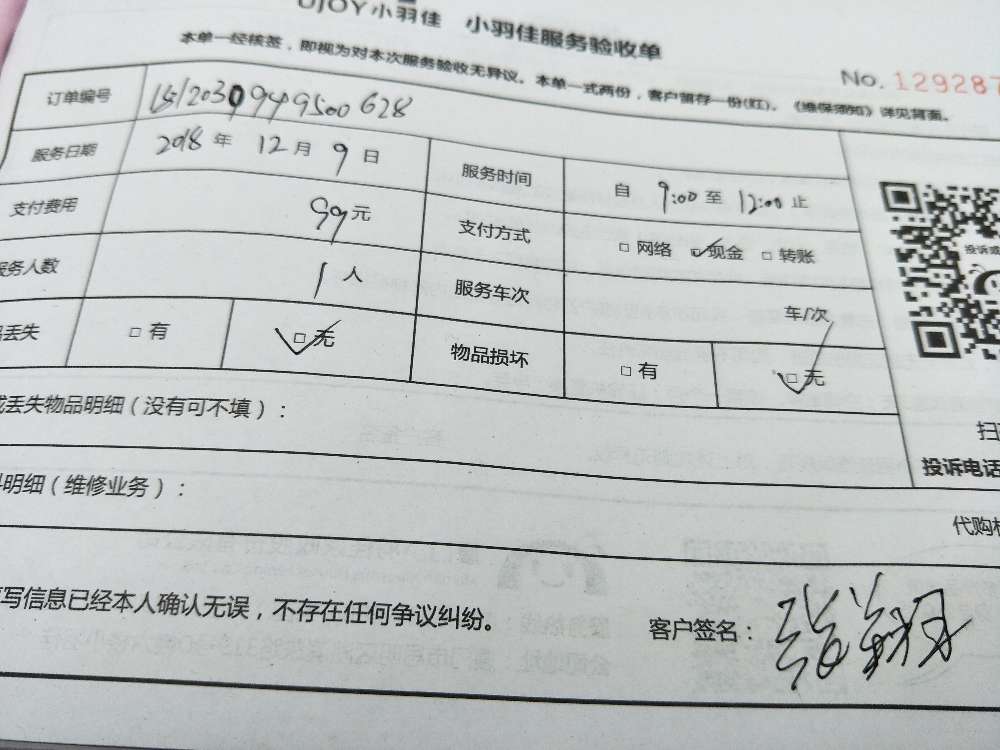 UJOY小羽佳 小羽佳服务验收单
本单一经核签，即视为对本次服务验收无异议。本单一式两份，客户留存一份(红)。《维保须知》详见背面。
No. 129287
订单编号
服务日期 2018 年 12 月 9 日 服务时间 自 9:00 至 12:00 止
支付费用 99元 支付方式 □ 网络 □ 现金 □ 转账
服务人数 1 人 服务车次 车/次
丢失 □ 有 □ 无 物品损坏 □ 有 □ 无
投诉或
丢失物品明细（没有可不填）：
扫
投诉电话
明细（维修业务）：
代购
写信息已经本人确认无误，不存在任何争议纠纷。
客户签名：